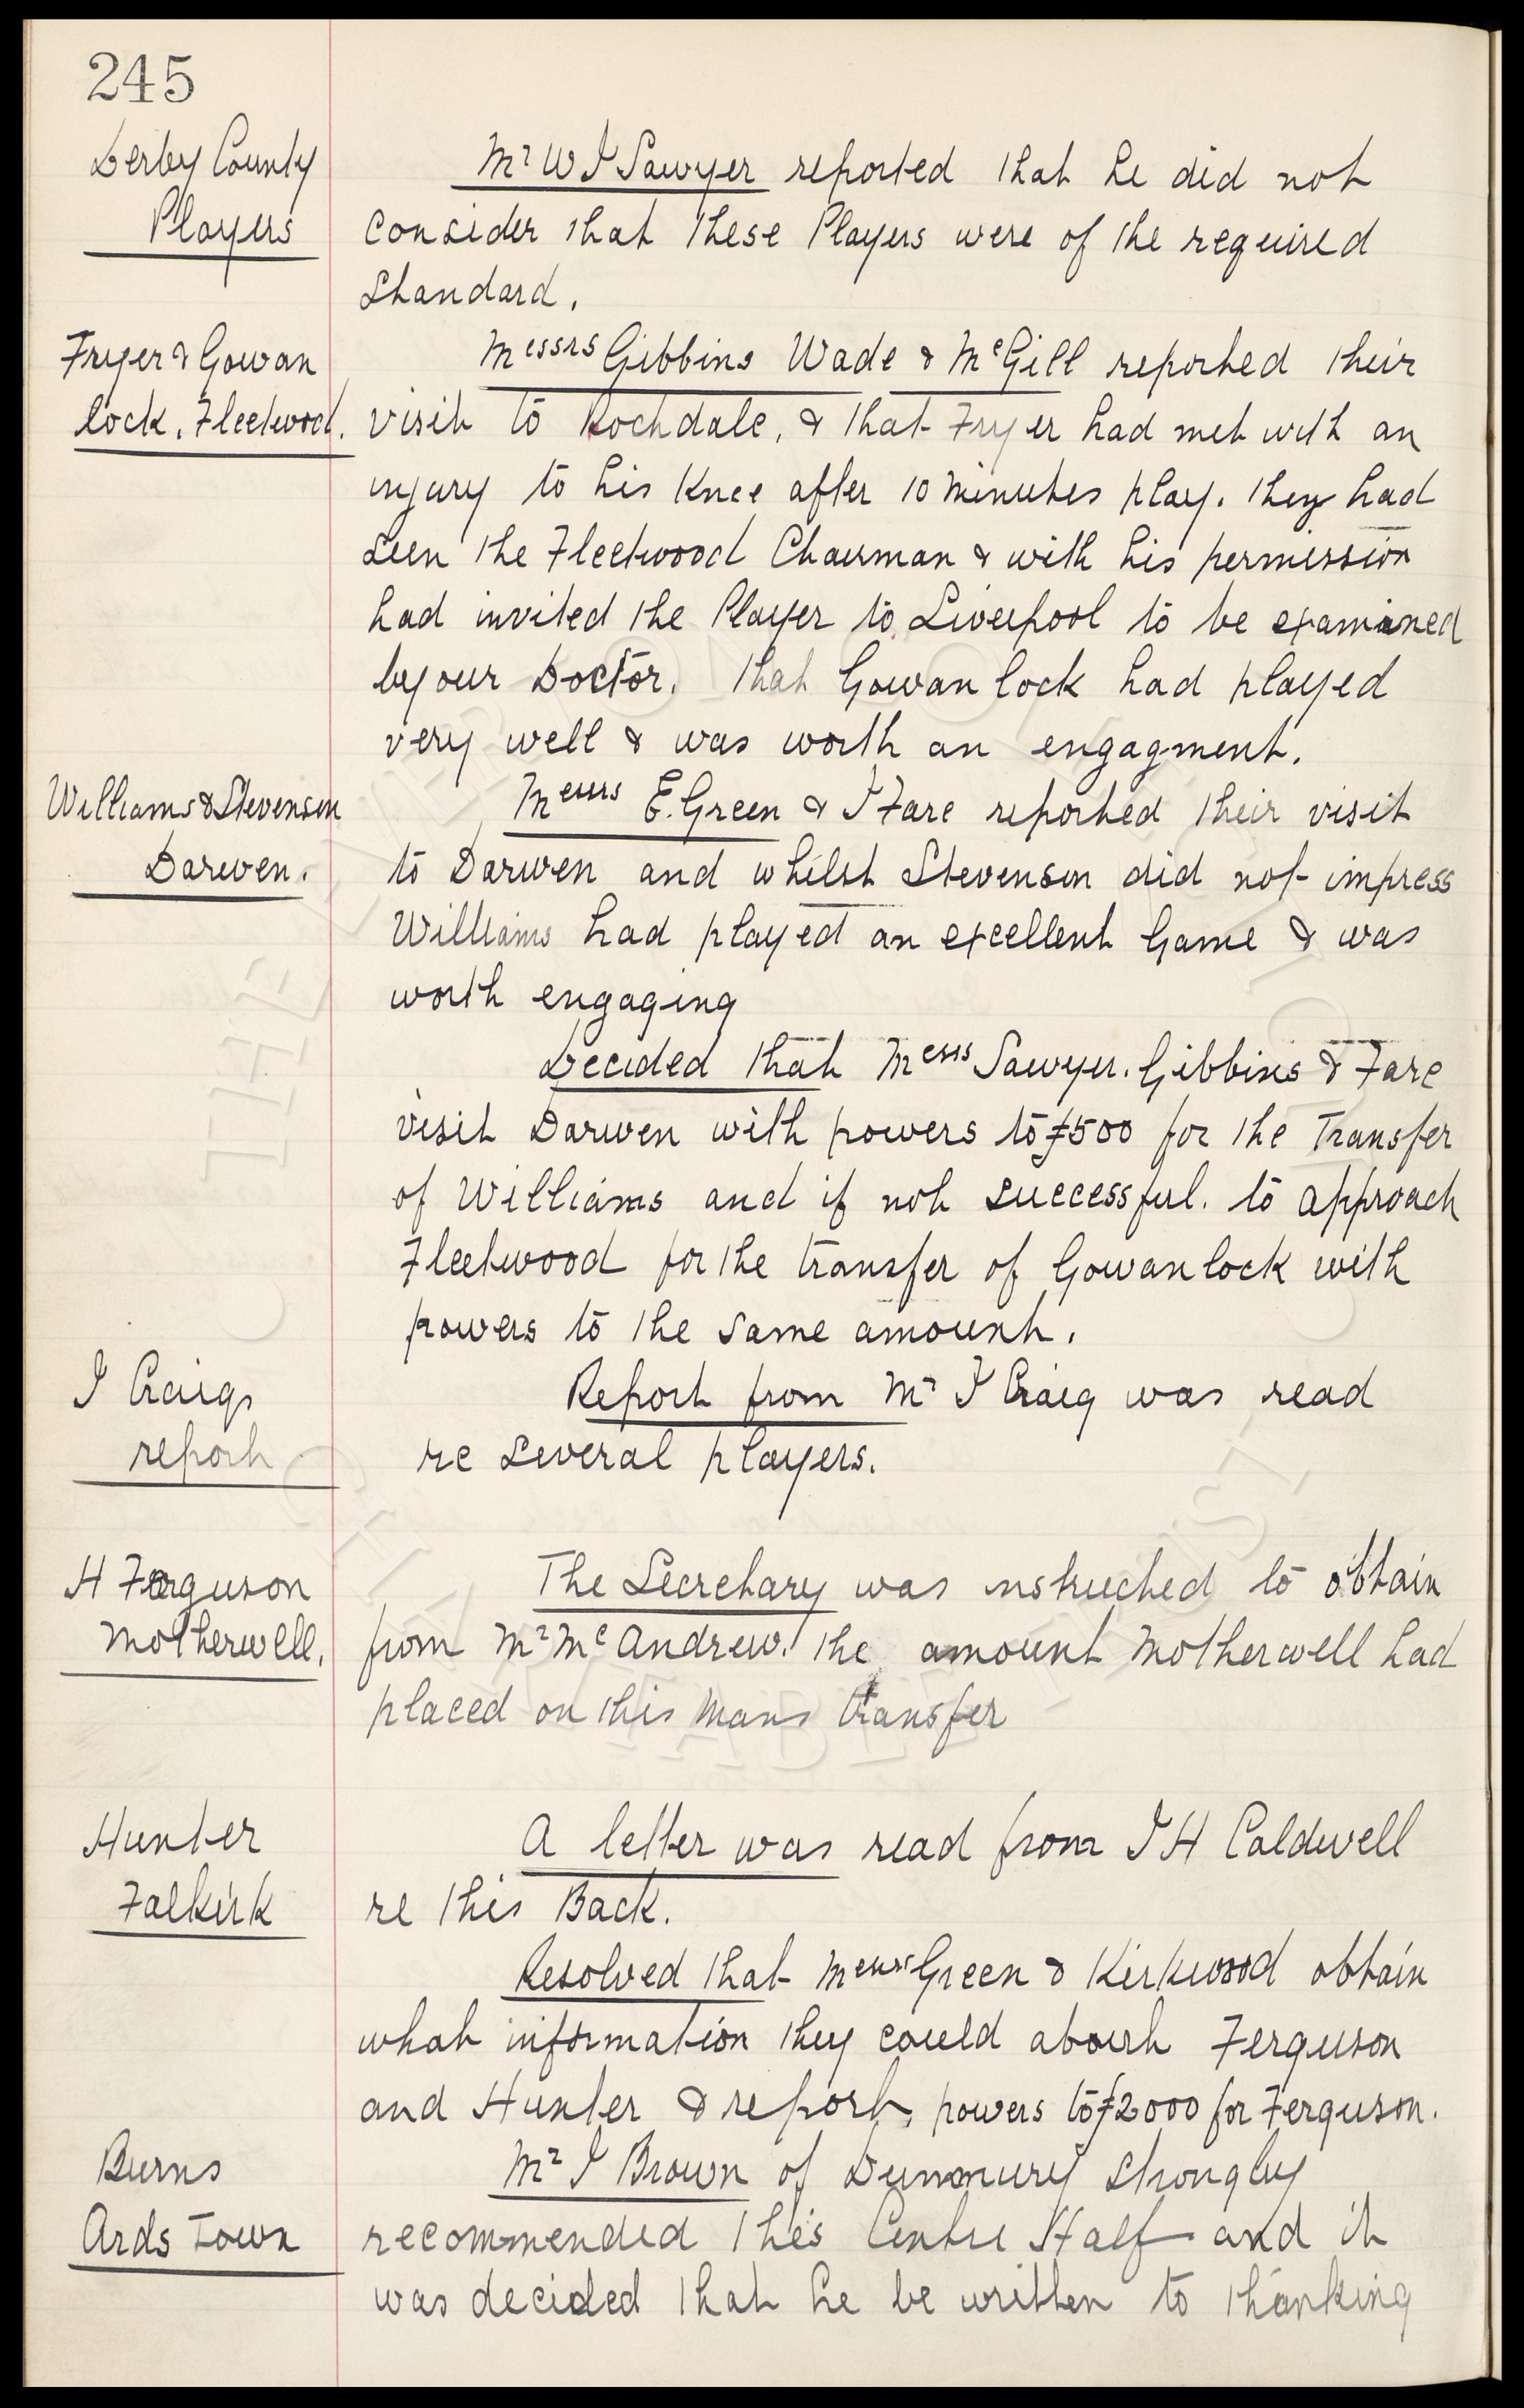 245
Derby County
Players
Mr W J Sawyer reported that he did not
consider that these Players were of the required
standard.
Fryer & Gowan
lock. Fleetwood.
Messrs Gibbins Wade & McGill reported their
visit to Rochdale, & that Fryer had met with an
injury to his Knee after 10 minutes play. they had
seen the Fleetwood Chairman & with his permission
had invited the Player to Liverpool to be examined
by our Doctor. That Gowanlock had played
very well & was worth an engagment.
Williams & Stevenson
Darwen.
Messrs E. Green & J Fare reported their visit
to Darwen and whilst Stevenson did not impress
Williams had played an excellent Game & was
worth engaging
Decided that Messrs Sawyer. Gibbins & Fare
visit Darwen with powers to £500 for the Transfer
of Williams and if not successful. to approach
Fleetwood for the transfer of Gowanlock with
powers to the same amount.
J Craigs
report
Report from Mr J Craig was read
re several players.
H Ferguson
Motherwell.
The Secretary was instructed to obtain
from Mr McAndrew. the amount Motherwell had
placed on this mans transfer
Hunter
Falkirk
A letter was read from J H Caldwell
re this Back.
Resolved that Messrs Green & Kirkwood obtain
what information they could about Ferguson
and Hunter & report, powers to £2000 for Ferguson.
Burns
Ards Town
Mr J Brown of Dunmury strongly
recommended this Centre Half and it
was decided that he be written to thanking